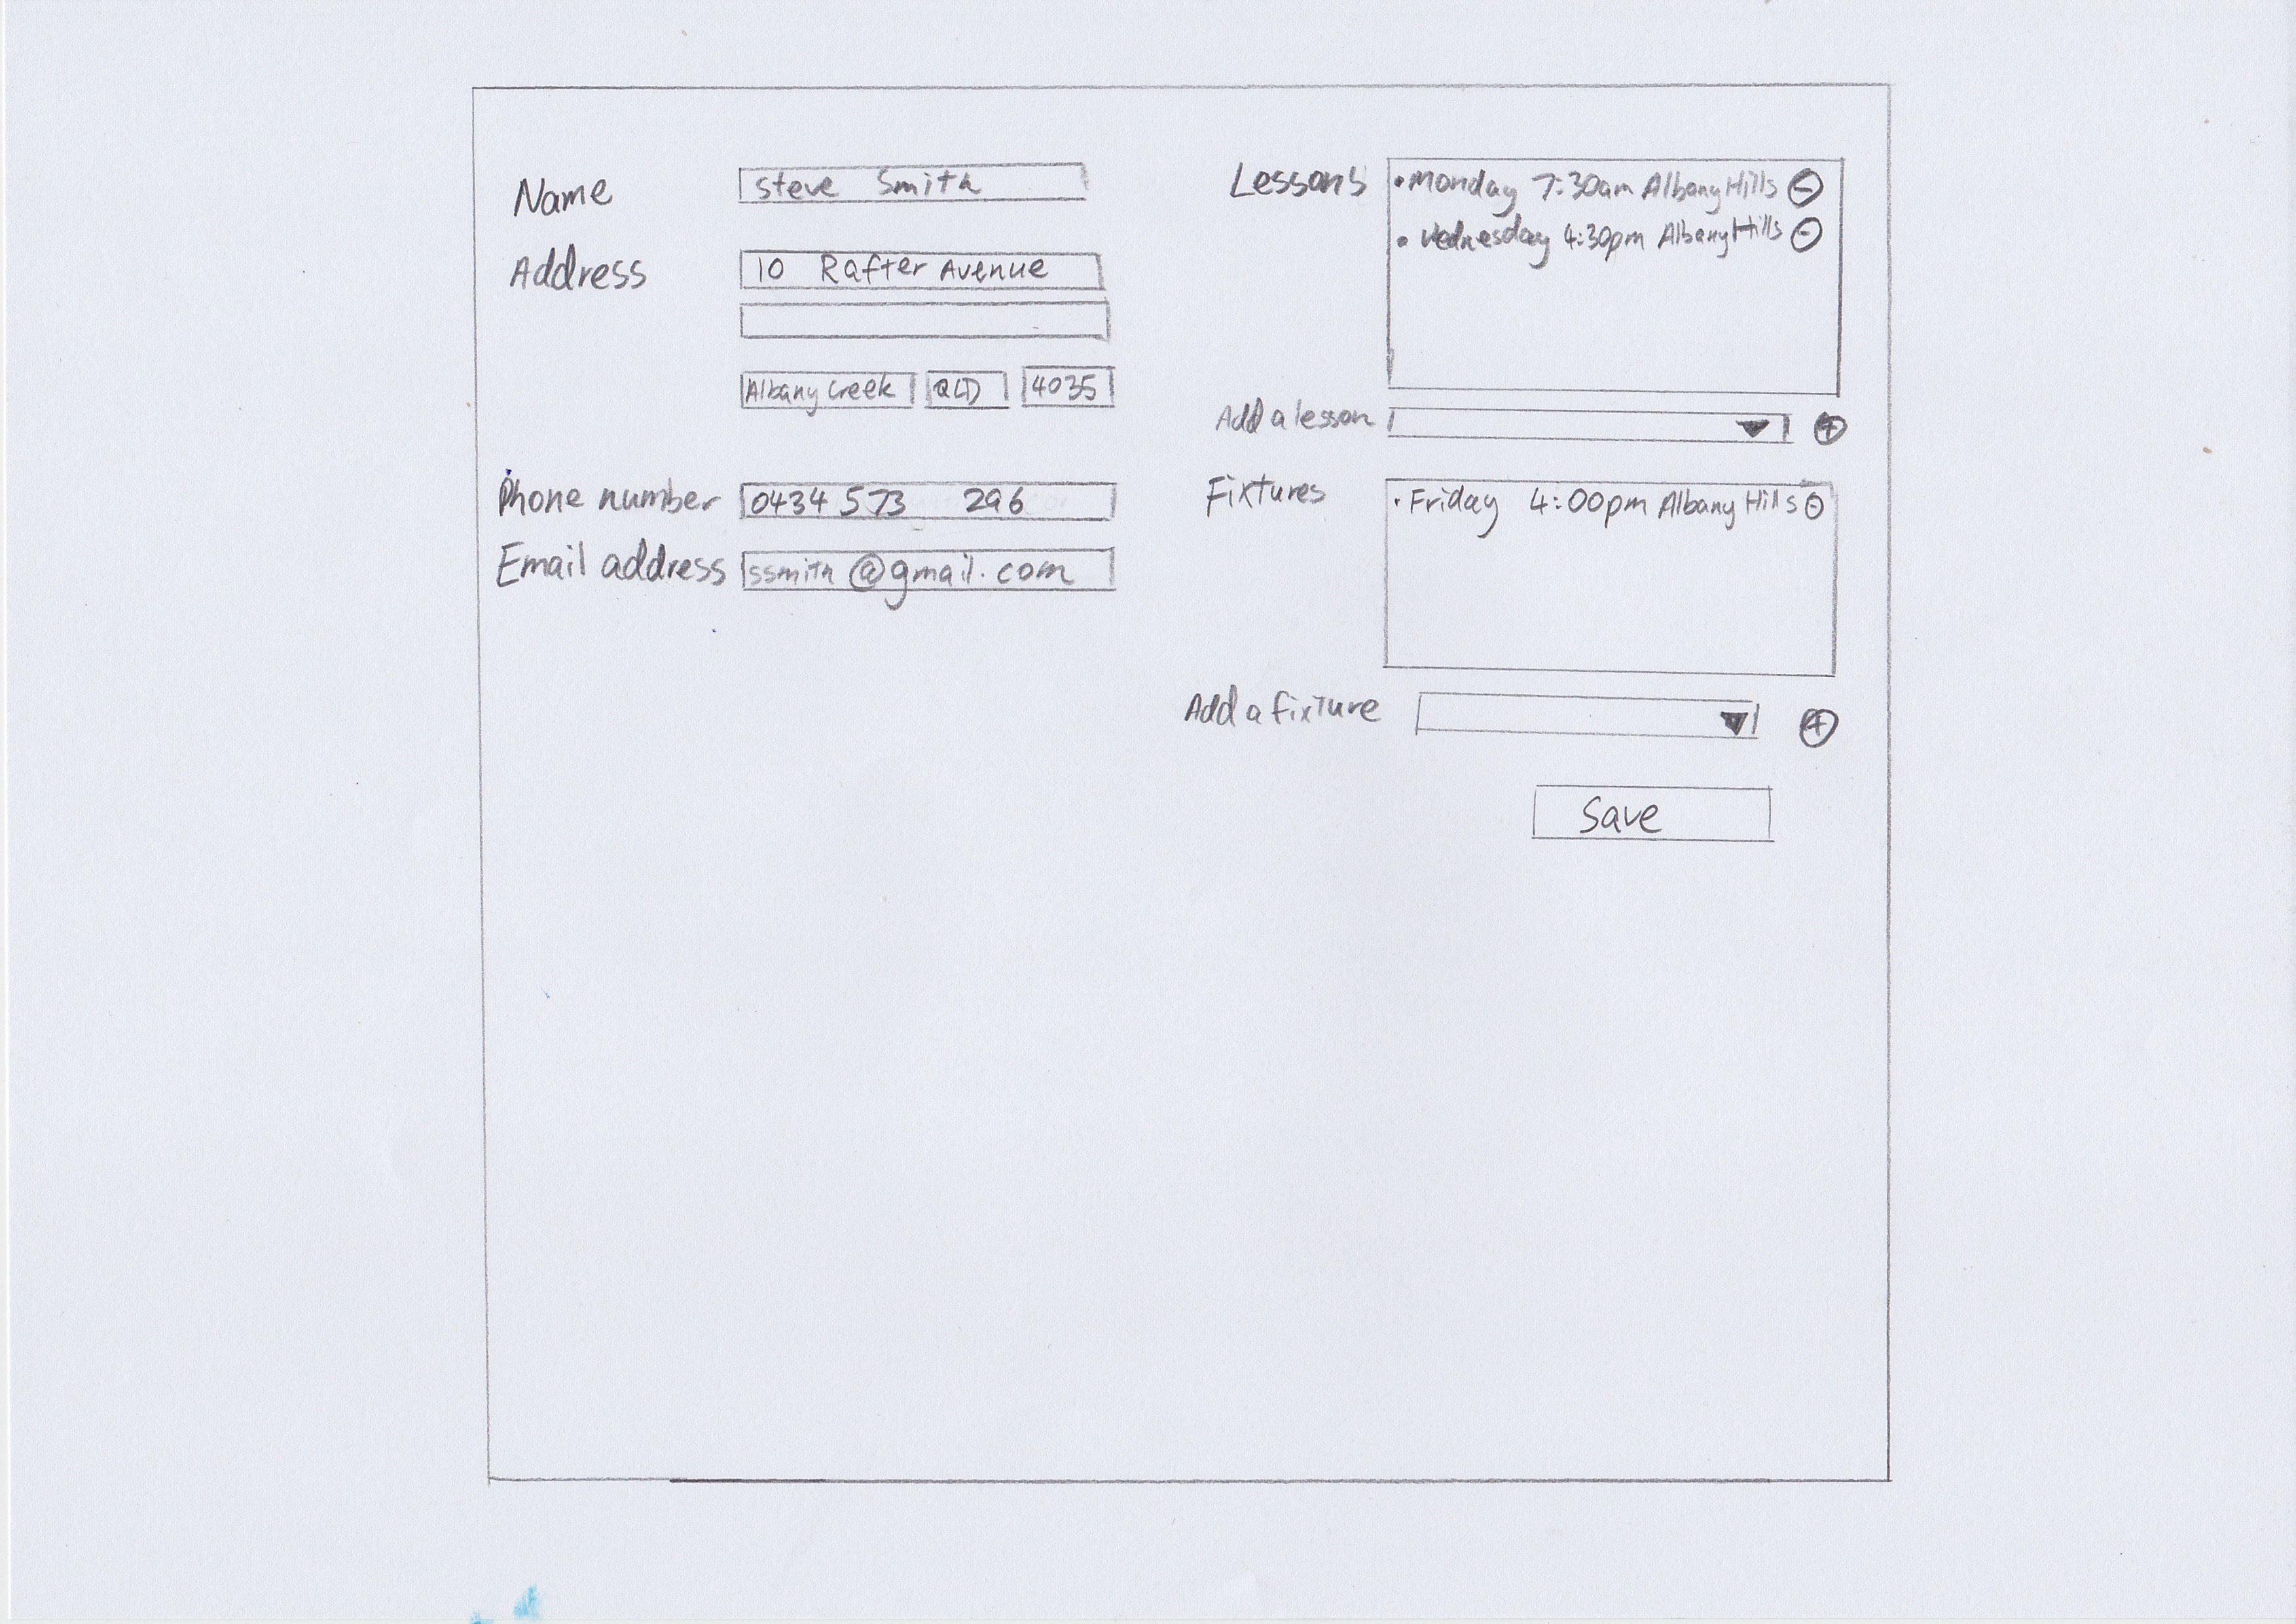 Name steve Smith
Address 10 Rafter Avenue
Albany Creek QLD 4035
Phone number 0434 573 296
Email address ssmith@gmail.com
Lessons • Monday 7:30am Albany Hills -
• Wednesday 4:30pm Albany Hills -
Add a lesson +
Fixtures • Friday 4:00pm Albany Hills -
Add a fixture +
Save